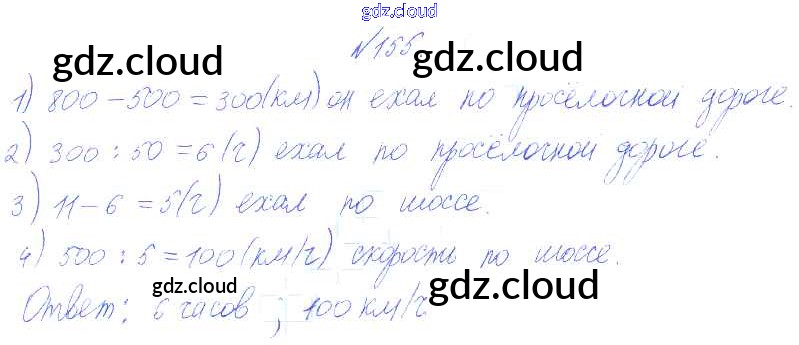 gdz.cloud
gdz.cloud gdz.cloud
№155
1) 800 - 500 = 300 (км) он ехал по просёлочной дороге.
gdz.cloud gdz.cloud
2) 300 : 50 = 6 (ч) ехал по просёлочной дороге.
3) 11 - 6 = 5 (ч) ехал по шоссе.
gdz.cloud gdz.cloud
4) 500 : 5 = 100 (км/ч) скорость по шоссе.
gdz.cloud gdz.cloud
Ответ: 6 часов ; 100 км/ч